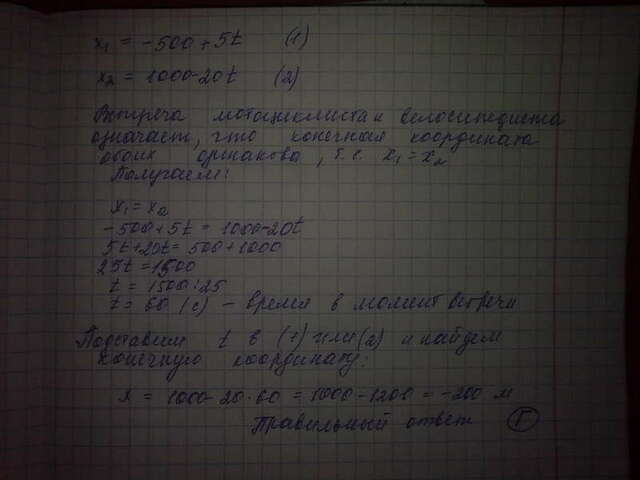 x₁ = -500 + 5t (1)
x₂ = 1000 - 20t (2)
Встреча мотоциклиста и велосипедиста
означает, что конечная координата
обоих одинакова, т.е. x₁ = x₂
Получаем:
x₁ = x₂
-500 + 5t = 1000 - 20t
5t + 20t = 500 + 1000
25t = 1500
t = 1500 : 25
t = 60 (с) - время в момент встречи
Подставим t в (1) или (2) и найдем
конечную координату:
x = 1000 - 20·60 = 1000 - 1200 = -200 м
Правильный ответ Г